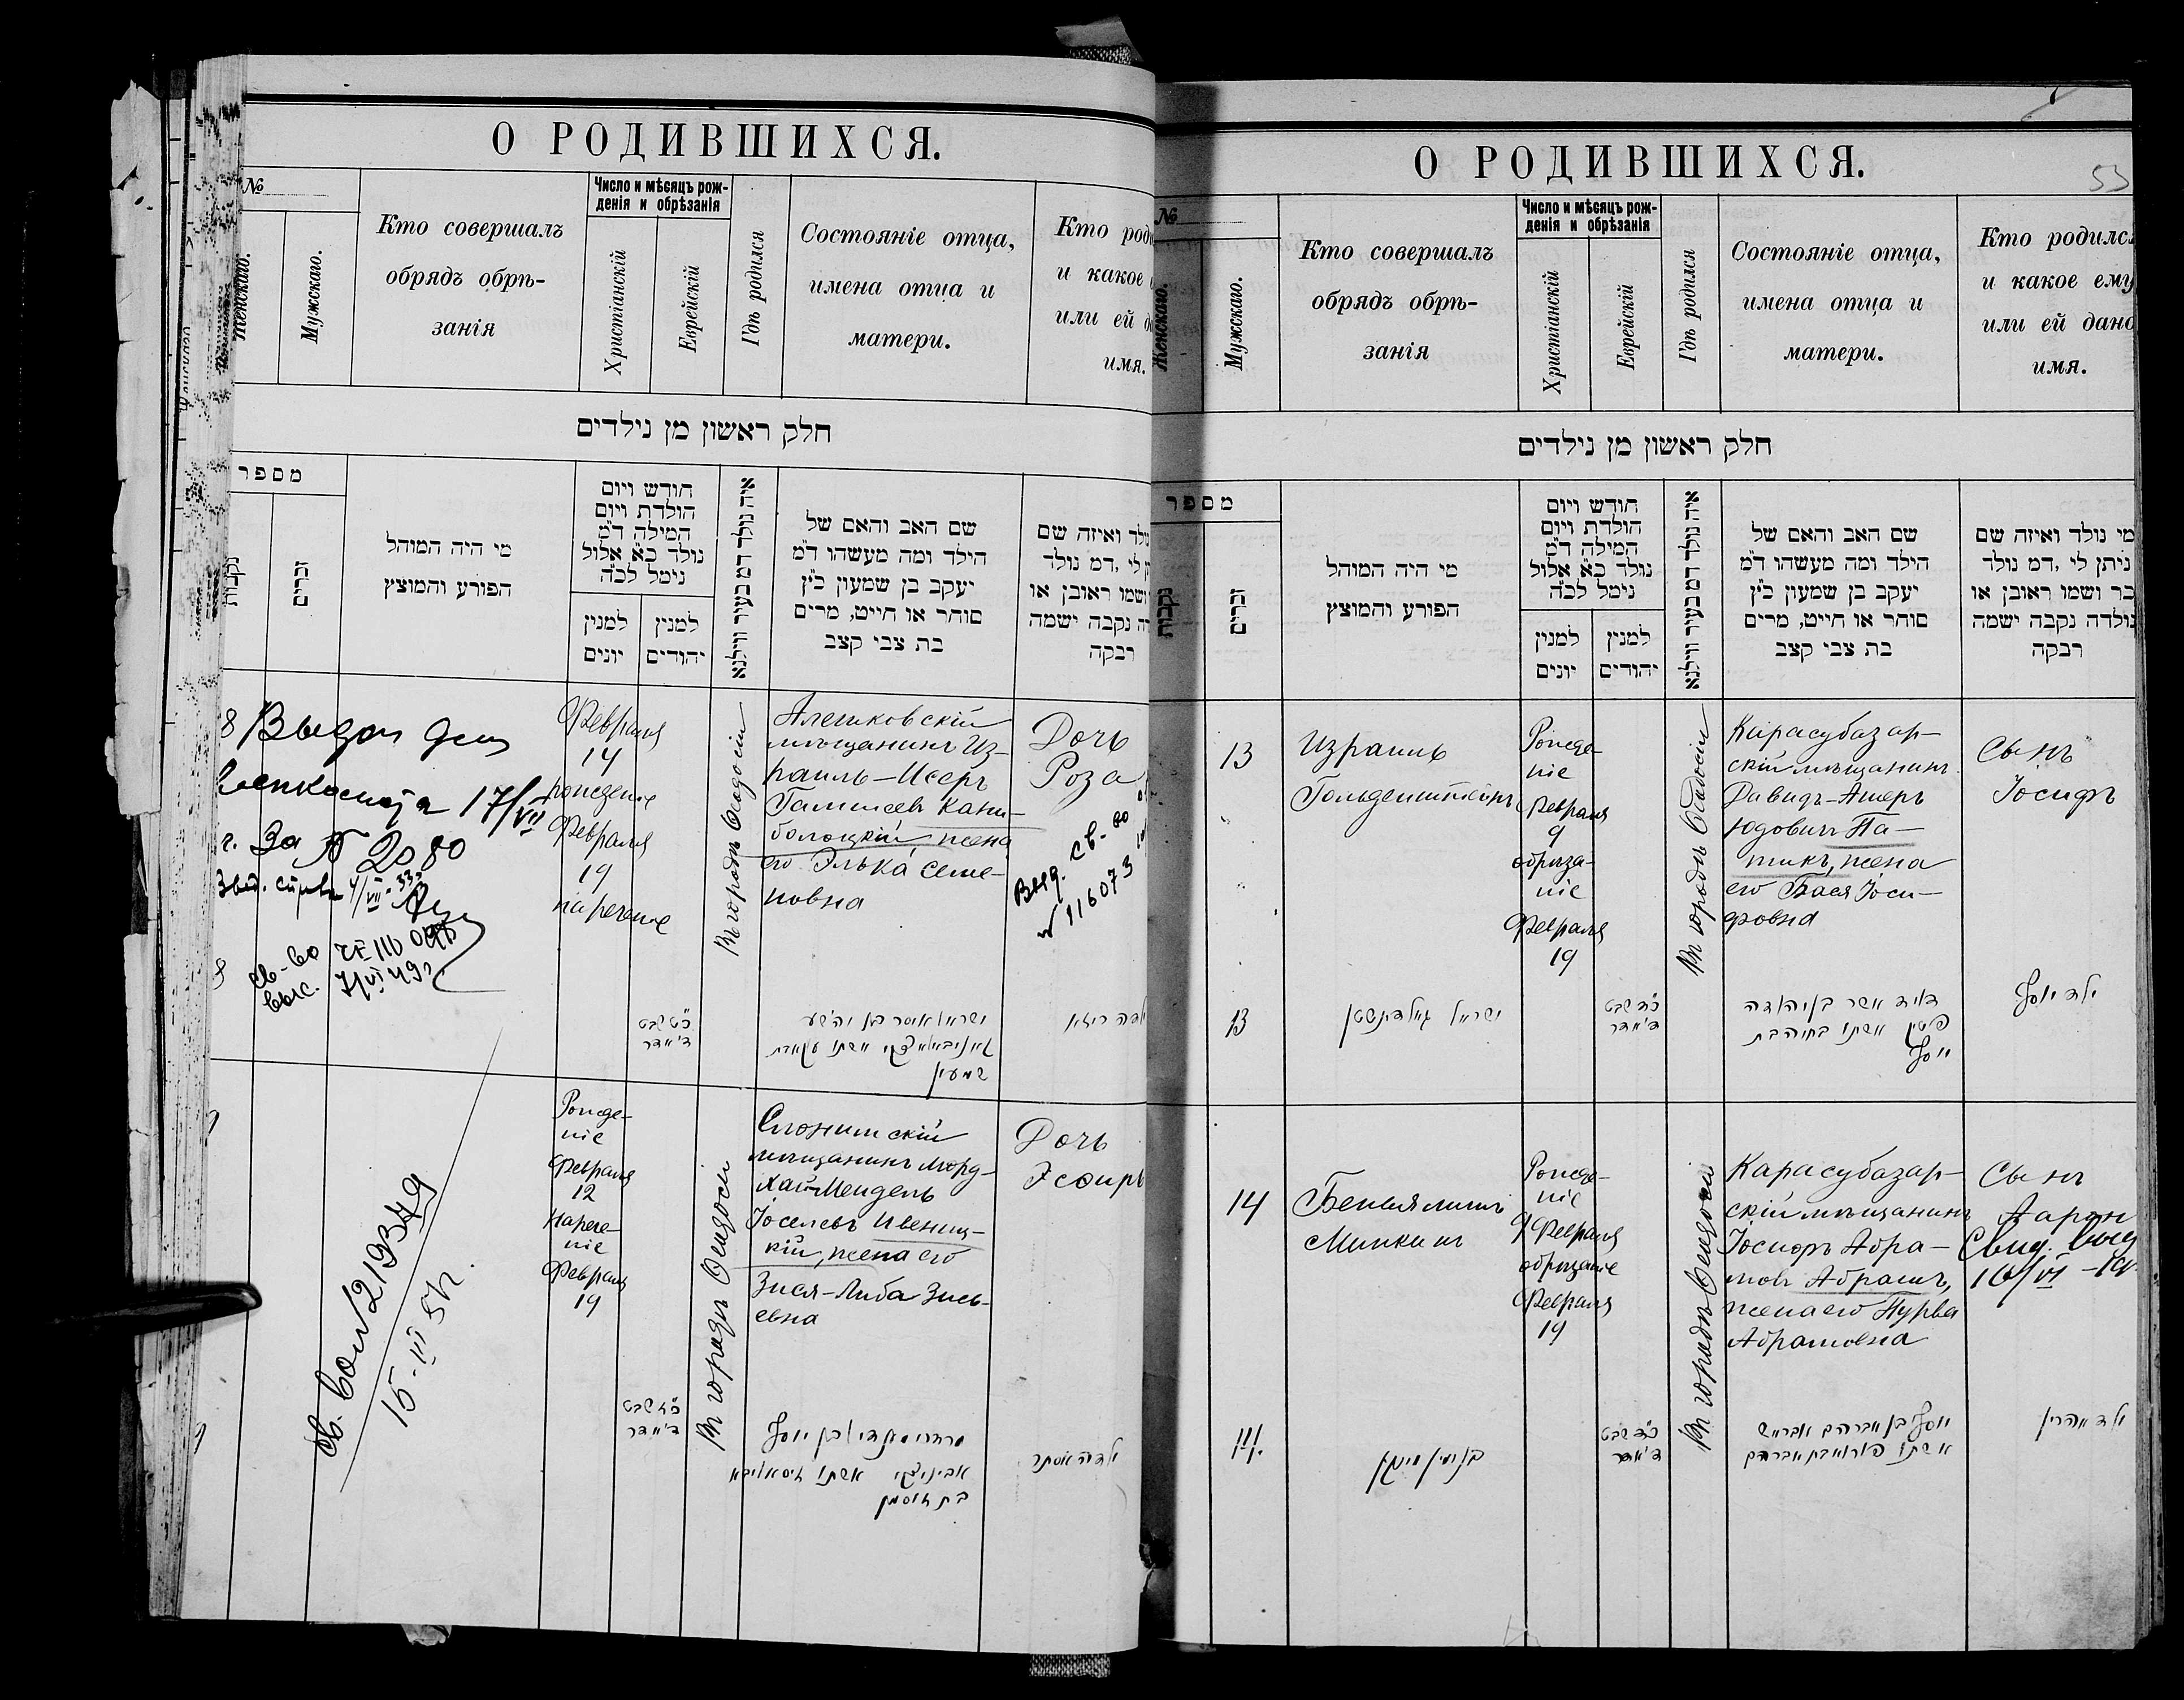 О РОДИВШИХСЯ.
№
Женскаго.
Мужскаго.
Кто совершалъ
обрядъ обрѣ-
занія
Число и мѣсяцъ рож-
денія и обрѣзанія
Христіанскій
Еврейскій
Гдѣ родился
Состояніе отца,
имена отца и
матери.
Кто
и какое
или ей
имя.
חלק ראשון מן נילדים
מספר
נקבות
זכרים
מי היה המוהל
הפורע והמוצץ
חודש ויום
הולדת ויום
המילה ד״מ
נולד כ״א אלול
נימל לכ״ה
למנין
יונים
למנין
יהודים
איה נולד דמ בעיר ווילנא
שם האב והאם של
הילד ומה מעשהו ד״מ
יעקב בן שמעון כ״ץ
סוחר או חייט, מרים
בת צבי קצב
ואיזה שם
לי, דמ נולד
ושמו ראובן או
נקבה ישמה
רבקה
8
17/VII
г. За № 2080
св-во
выс. 7/VI 49 г.
Февраля
14
рожденіе
Февраля
19
нареченіе
Въ городѣ Ѳеодосіи
Алешковскій
мѣщанинъ Из-
раиль-Исеръ
Кани-
болоцкій, жена
его Элька Семе-
новна
Дочь
Роза
Выд. св-во
№ 116073
כ״ט שבט
ד׳ אדר
שמעון
Рожде-
ніе
Февраля
12
Нарече-
ніе
Февраля
19
Въ городѣ Ѳеодосіи
Слонимскій
мѣщанинъ Морд-
хай-Мендель
Іоселевъ Ивениц-
кій, жена его
Зися-Либа Зись-
евна
Дочь
Эсѳирь
св. 219349
15-III 51 г.
ד׳ אדר
ילדה אסתר
О РОДИВШИХСЯ.
53
№
Женскаго.
Мужскаго.
Кто совершалъ
обрядъ обрѣ-
занія
Число и мѣсяцъ рож-
денія и обрѣзанія
Христіанскій
Еврейскій
Гдѣ родился
Состояніе отца,
имена отца и
матери.
Кто родился
и какое ему
или ей дано
имя.
חלק ראשון מן נילדים
מספר
נקבות
זכרים
מי היה המוהל
הפורע והמוצץ
חודש ויום
הולדת ויום
המילה ד״מ
נולד כ״א אלול
נימל לכ״ה
למנין
יונים
למנין
יהודים
איה נולד דמ בעיר ווילנא
שם האב והאם של
הילד ומה מעשהו ד״מ
יעקב בן שמעון כ״ץ
סוחר או חייט, מרים
בת צבי קצב
מי נולד ואיזה שם
ניתן לי, דמ נולד
בר ושמו ראובן או
נולדה נקבה ישמה
רבקה
13
Израиль
Гольденштейнъ
Рожде-
ніе
Февраля
9
обрѣза-
ніе
Февраля
19
Въ городѣ Ѳеодосіи
Карасубазар-
скій мѣщанинъ
Давидъ-Ашеръ
Юдовичъ Па-
тикъ, жена
его Бася Іоси-
фовна
Сынъ
Іосифъ
13
ישראל גאלדענשטין
כ״ה שבט
ד׳ אדר
דוד אשר בן יהודה
פטיק אשתו
יוסף
ילד יוסף
14
Беньяминъ
Минкинъ
Рожде-
ніе
9 Февраля
обрѣзаніе
Февраля
19
Въ городѣ Ѳеодосіи
Карасубазар-
скій мѣщанинъ
Іосифъ Абра-
мовъ Абрашъ,
жена его Пурва
Абрамовна
Сынъ
Ааронъ
Свид. выд
10/VI
14.
בנימין מינקין
כ״ה שבט
ד׳ אדר
יוסף בן אברהם אבראש
אשתו פורווא בת אברהם
ילד אהרן